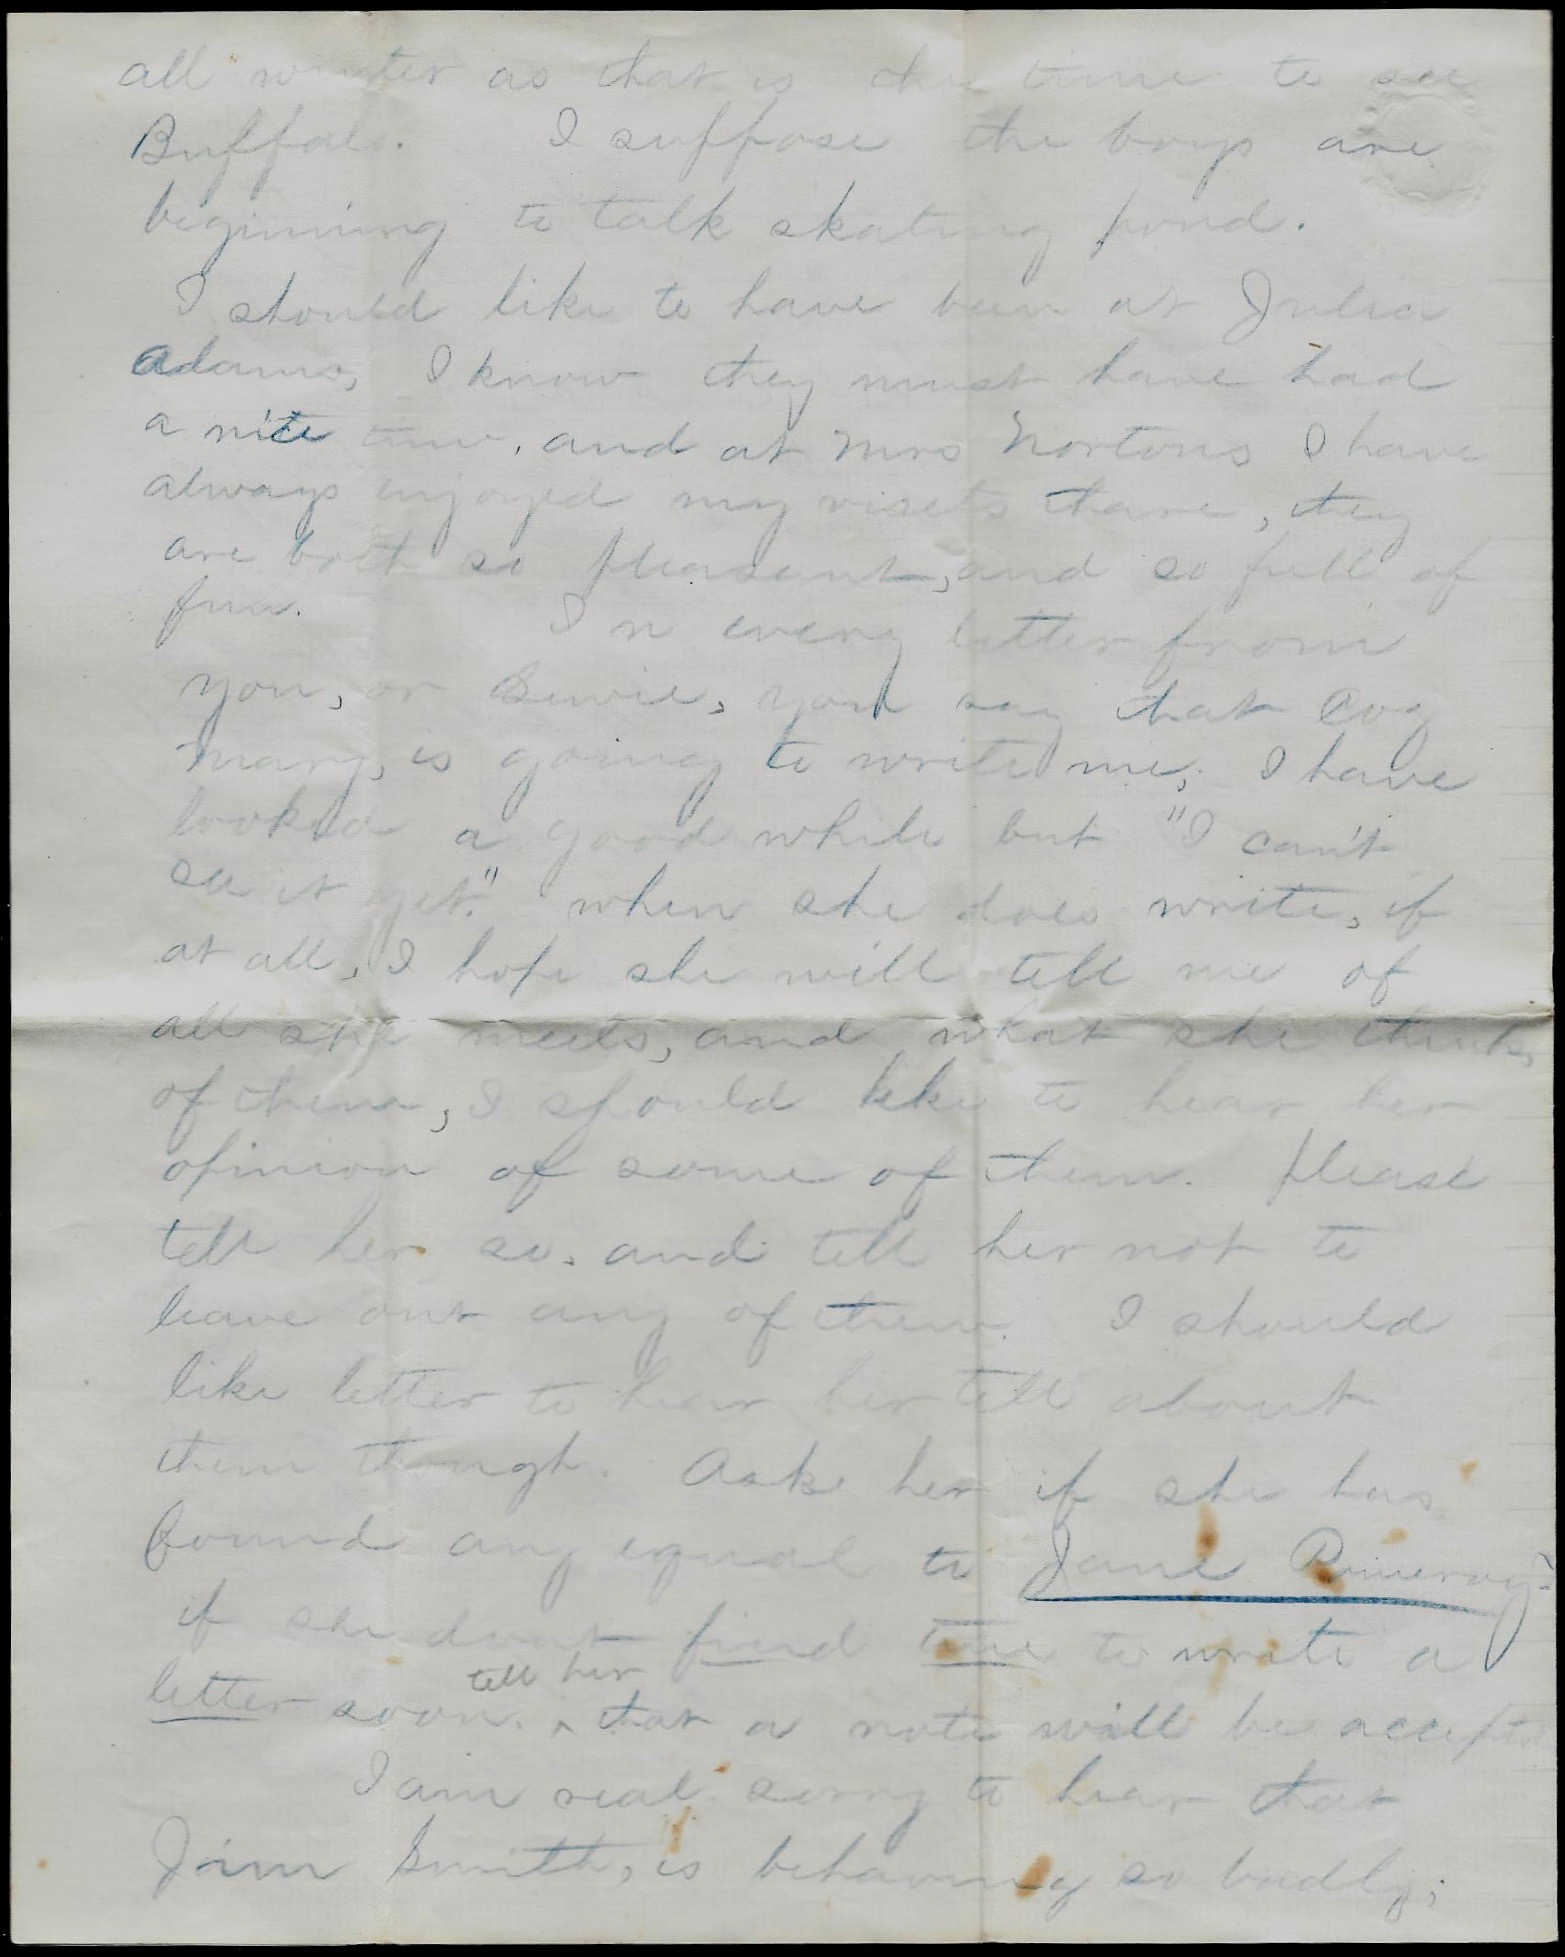 all winter as that is the time to see
Buffalo. I suppose the boys are
beginning to talk skating pond.
I should like to have been at Julia
Adams, I know they must have had
a nice time, and at Mrs Nortons I have
always enjoyed my visets thare, they
are both so pleasant, and so full of
fun. In every letter from
you, or you say that Coz
Mary, is going to write me, I have
looked a good while but "I can't
see it yet." when she does write, if
at all, I hope she will tell me of
all she meets, and what she thinks
of them, I should like to hear her
opinion of some of them. please
tell her so. and tell her not to
leave out any of them. I should
like letter to hear her tell about
them though. Ask her if she has
found any equal to Jane Pomeroy?
if she dont find time to write a
letter soon. ^ tell her that a note will be accepted
I am real sorry to hear that
Jim Smith, is behaving so badly;